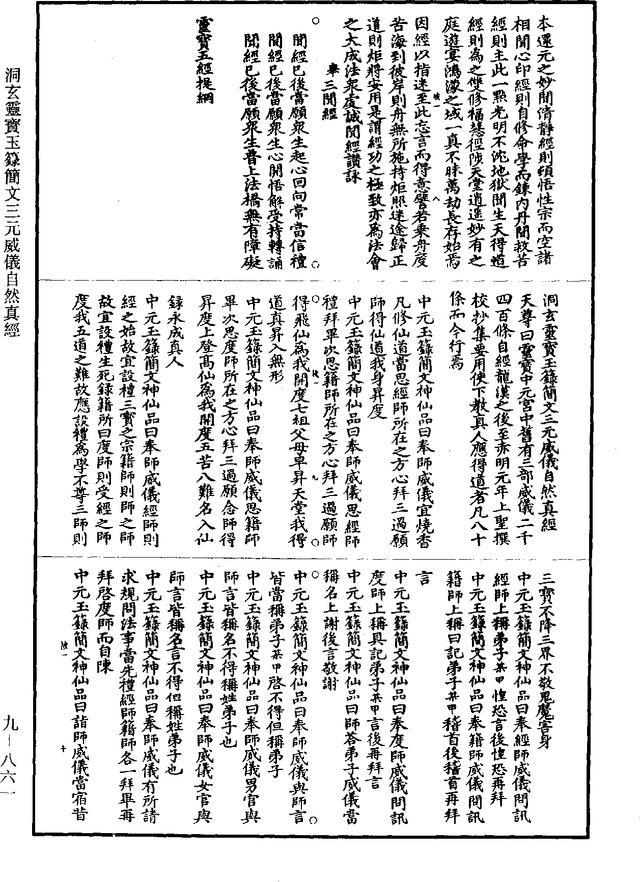 本還元之妙聞清靜經則頓悟性宗而空諸
相聞心印經則自修命學而鍊內丹聞救苦
經則主此一點光明不沈地獄聞生天得道
經則為之雙修福慧徑陟天堂逍遙妙有之
庭遊宴鴻濛之域一真不昧萬劫長存始焉
因經以指迷至此忘言而得意譬若乘舟度
苦海到彼岸則舟無所施持炬照迷途歸正
道則炬將安用是謂經功之極致亦為法會
之大成法衆虔誠聞經讚詠
舉三聞經
聞經已後當願衆生起心回向常當信禮
聞經已後當願衆生心開悟解受持轉誦
聞經已後當願衆生普上法橋無有障礙
靈寶五經提綱
洞玄靈寶玉籙簡文三元威儀自然真經
天尊曰靈寶中元宮中舊有三部威儀二千
四百條自經龍漢之後至赤明元年上聖撰
校抄集要用使下教真人應得道者凡八十
條而令行焉
中元玉籙簡文神仙品曰奉師威儀宜燒香
凡修仙道當思經師所在之方心拜三過願
師得仙道我身昇度
中元玉籙簡文神仙品曰奉師威儀思經師
禮拜畢次思籍師所在之方心拜三過願師
得飛仙為我開度七祖父母早昇天堂我得
道真昇入無形
中元玉籙簡文神仙品曰奉師威儀思籍師
畢次思度師所在之方心拜三過願念師得
昇度上登高仙為我開度五苦八難名入仙
錄永成真人
中元玉籙簡文神仙品曰奉師威儀經師則
經之始故宜設禮三寶之宗籍師則師之師
故宜設禮生死錄籍所曰度師則受經之師
度我五道之難故應設禮為學不尊三師則
三寶不降三界不敬鬼魔害身
中元玉籙簡文神仙品曰奉經師威儀問訊
經師上稱弟子某甲惶恐言後惶恐再拜
中元玉籙簡文神仙品曰奉籍師威儀問訊
籍師上稱曰記弟子某甲稽首後稽首再拜
言
中元玉籙簡文神仙品曰奉度師威儀問訊
度師上稱具記弟子某甲言後再拜言
中元玉籙簡文神仙品曰師答弟子威儀當
稱名上謝後言敬謝
中元玉籙簡文神仙品曰奉師威儀與師言
皆當稱弟子某甲啓不得但稱弟子
中元玉籙簡文神仙品曰奉師威儀男官與
師言皆稱名不得稱姓弟子也
中元玉籙簡文神仙品曰奉師威儀女官與
師言皆稱名言不得但稱姓弟子也
中元玉籙簡文神仙品曰奉師威儀有所請
求規問法事當先禮經師籍師各一拜畢再
拜啓度師而自陳
中元玉籙簡文神仙品曰詣師威儀當宿昔
洞玄靈寶玉籙簡文三元威儀自然真經
九－八六一